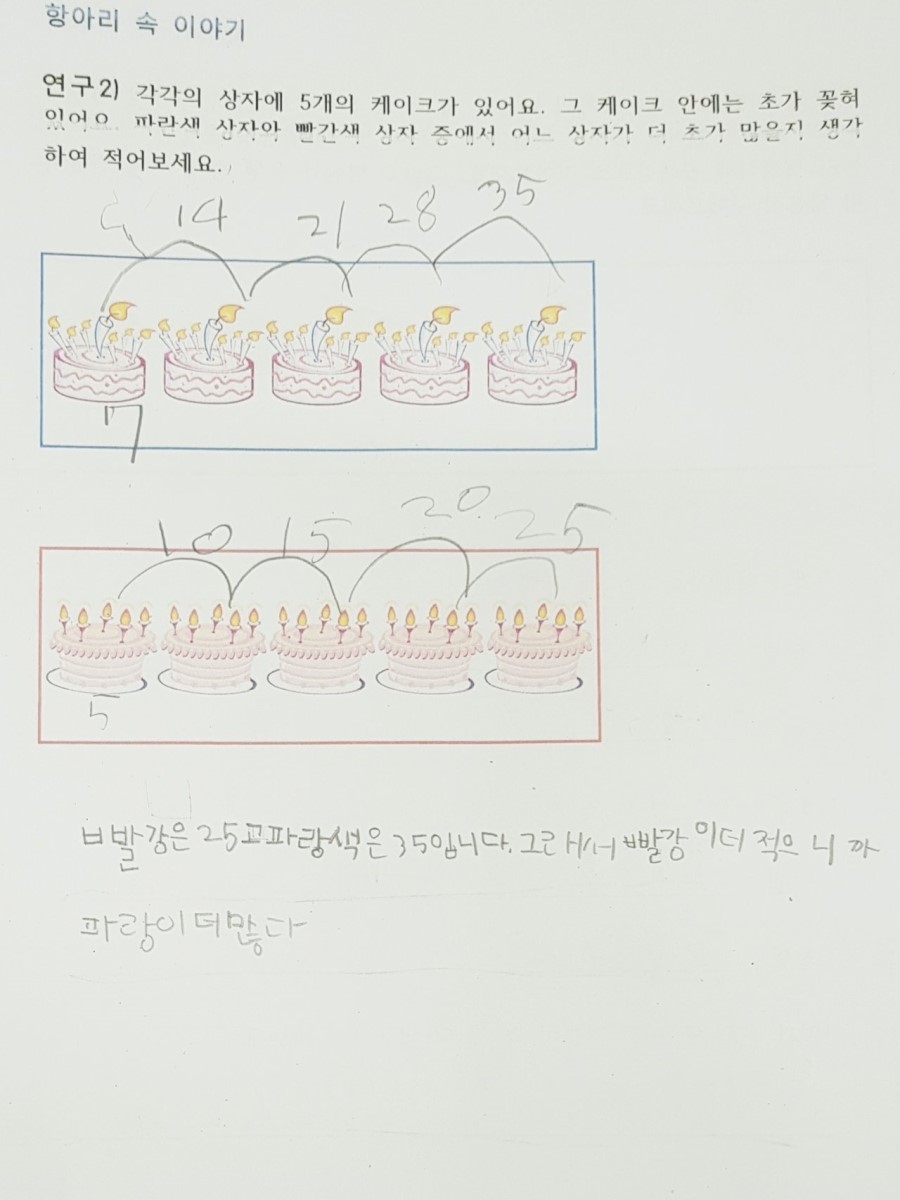 항아리 속 이야기
연구2) 각각의 상자에 5개의 케이크가 있어요. 그 케이크 안에는 초가 꽂혀
있어요. 파란색 상자와 빨간색 상자 중에서 어느 상자가 더 초가 많은지 생각
하여 적어보세요.
14 21 28 35
7
10 15 20 25
5
빨강은 25고파랑색은 35입니다. 그래서 빨강이더 적으니까
파랑이더많다